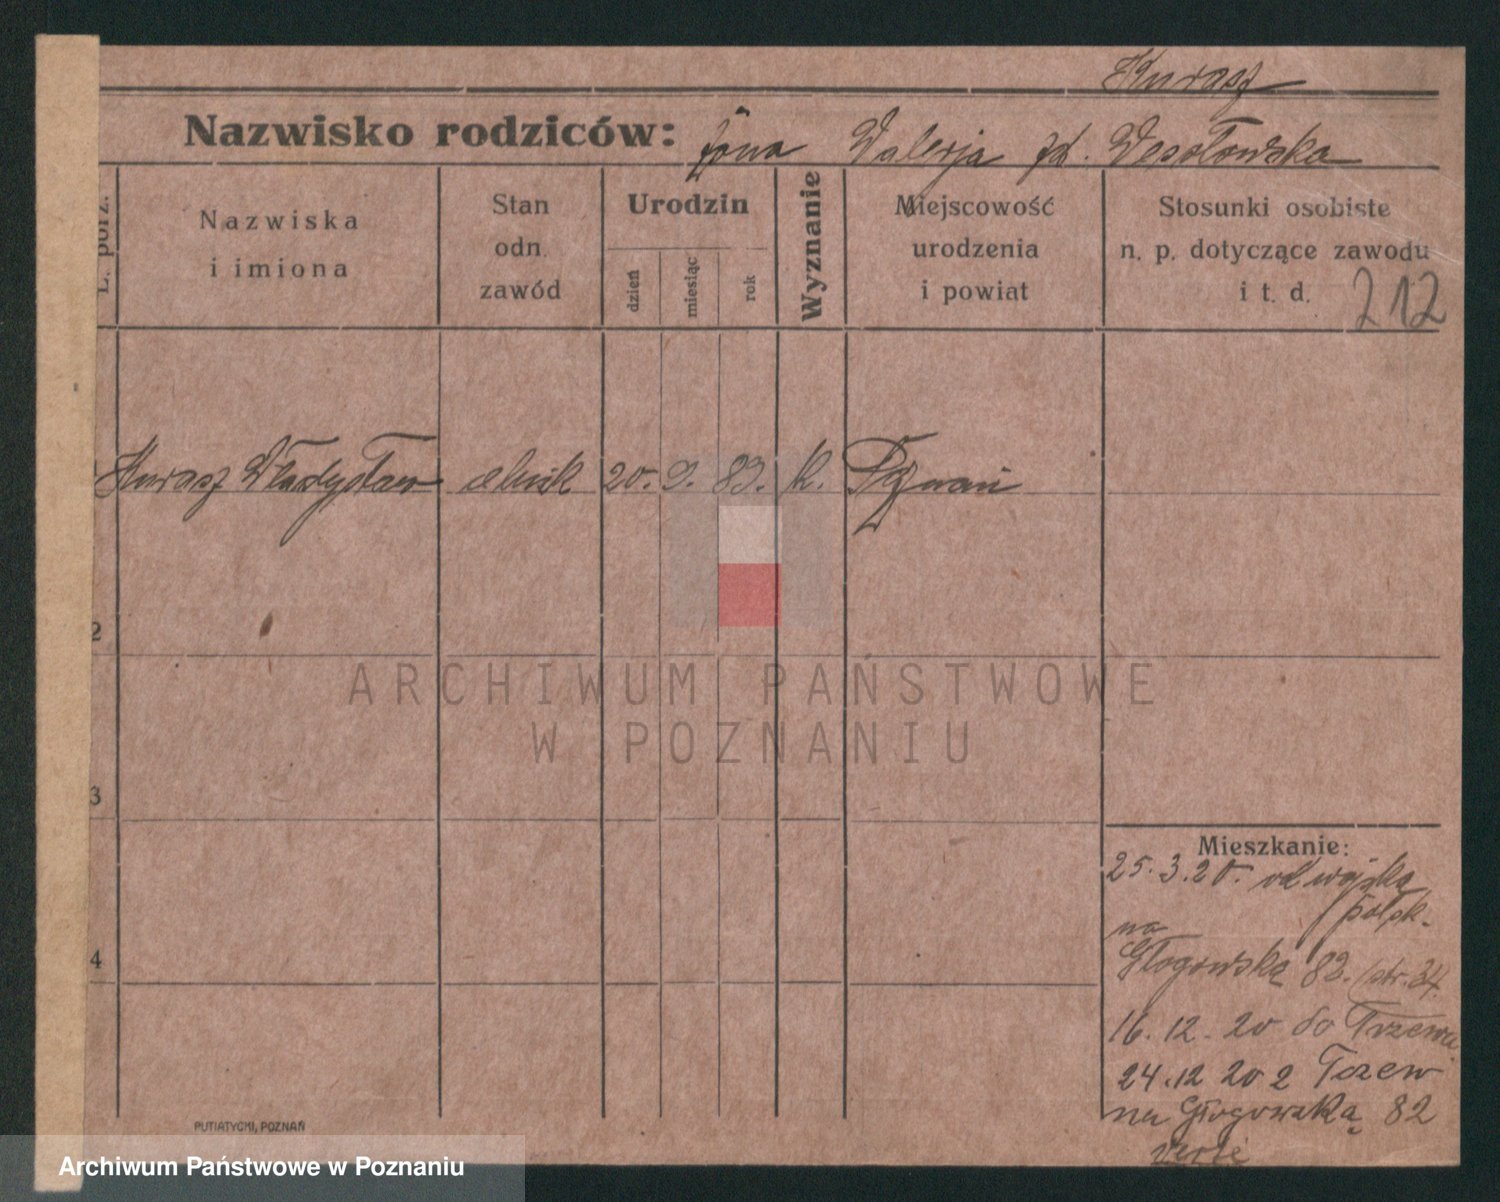 Kurasz
Nazwisko rodziców: żona Walerja zd. Wesołowska
L. porz.
Nazwiska
i imiona
Stan
odn.
zawód
Urodzin
dzień
miesiąc
rok
Wyznanie
Miejscowość
urodzenia
i powiat
Stosunki osobiste
n. p. dotyczące zawodu
i t. d.
212
1 Kurasz Władysław 20. 9. 83. k. Poznań
2
3
4
Mieszkanie:
25.3.20. od wojska
polsk.
na
Głogowską 82. (str. 34.
16.12.20 do
24.12 20 z Tczew
na Głogowską 82
verte
PUTIATYCKI, POZNAŃ
ARCHIWUM PAŃSTWOWE
W POZNANIU
Archiwum Państwowe w Poznaniu